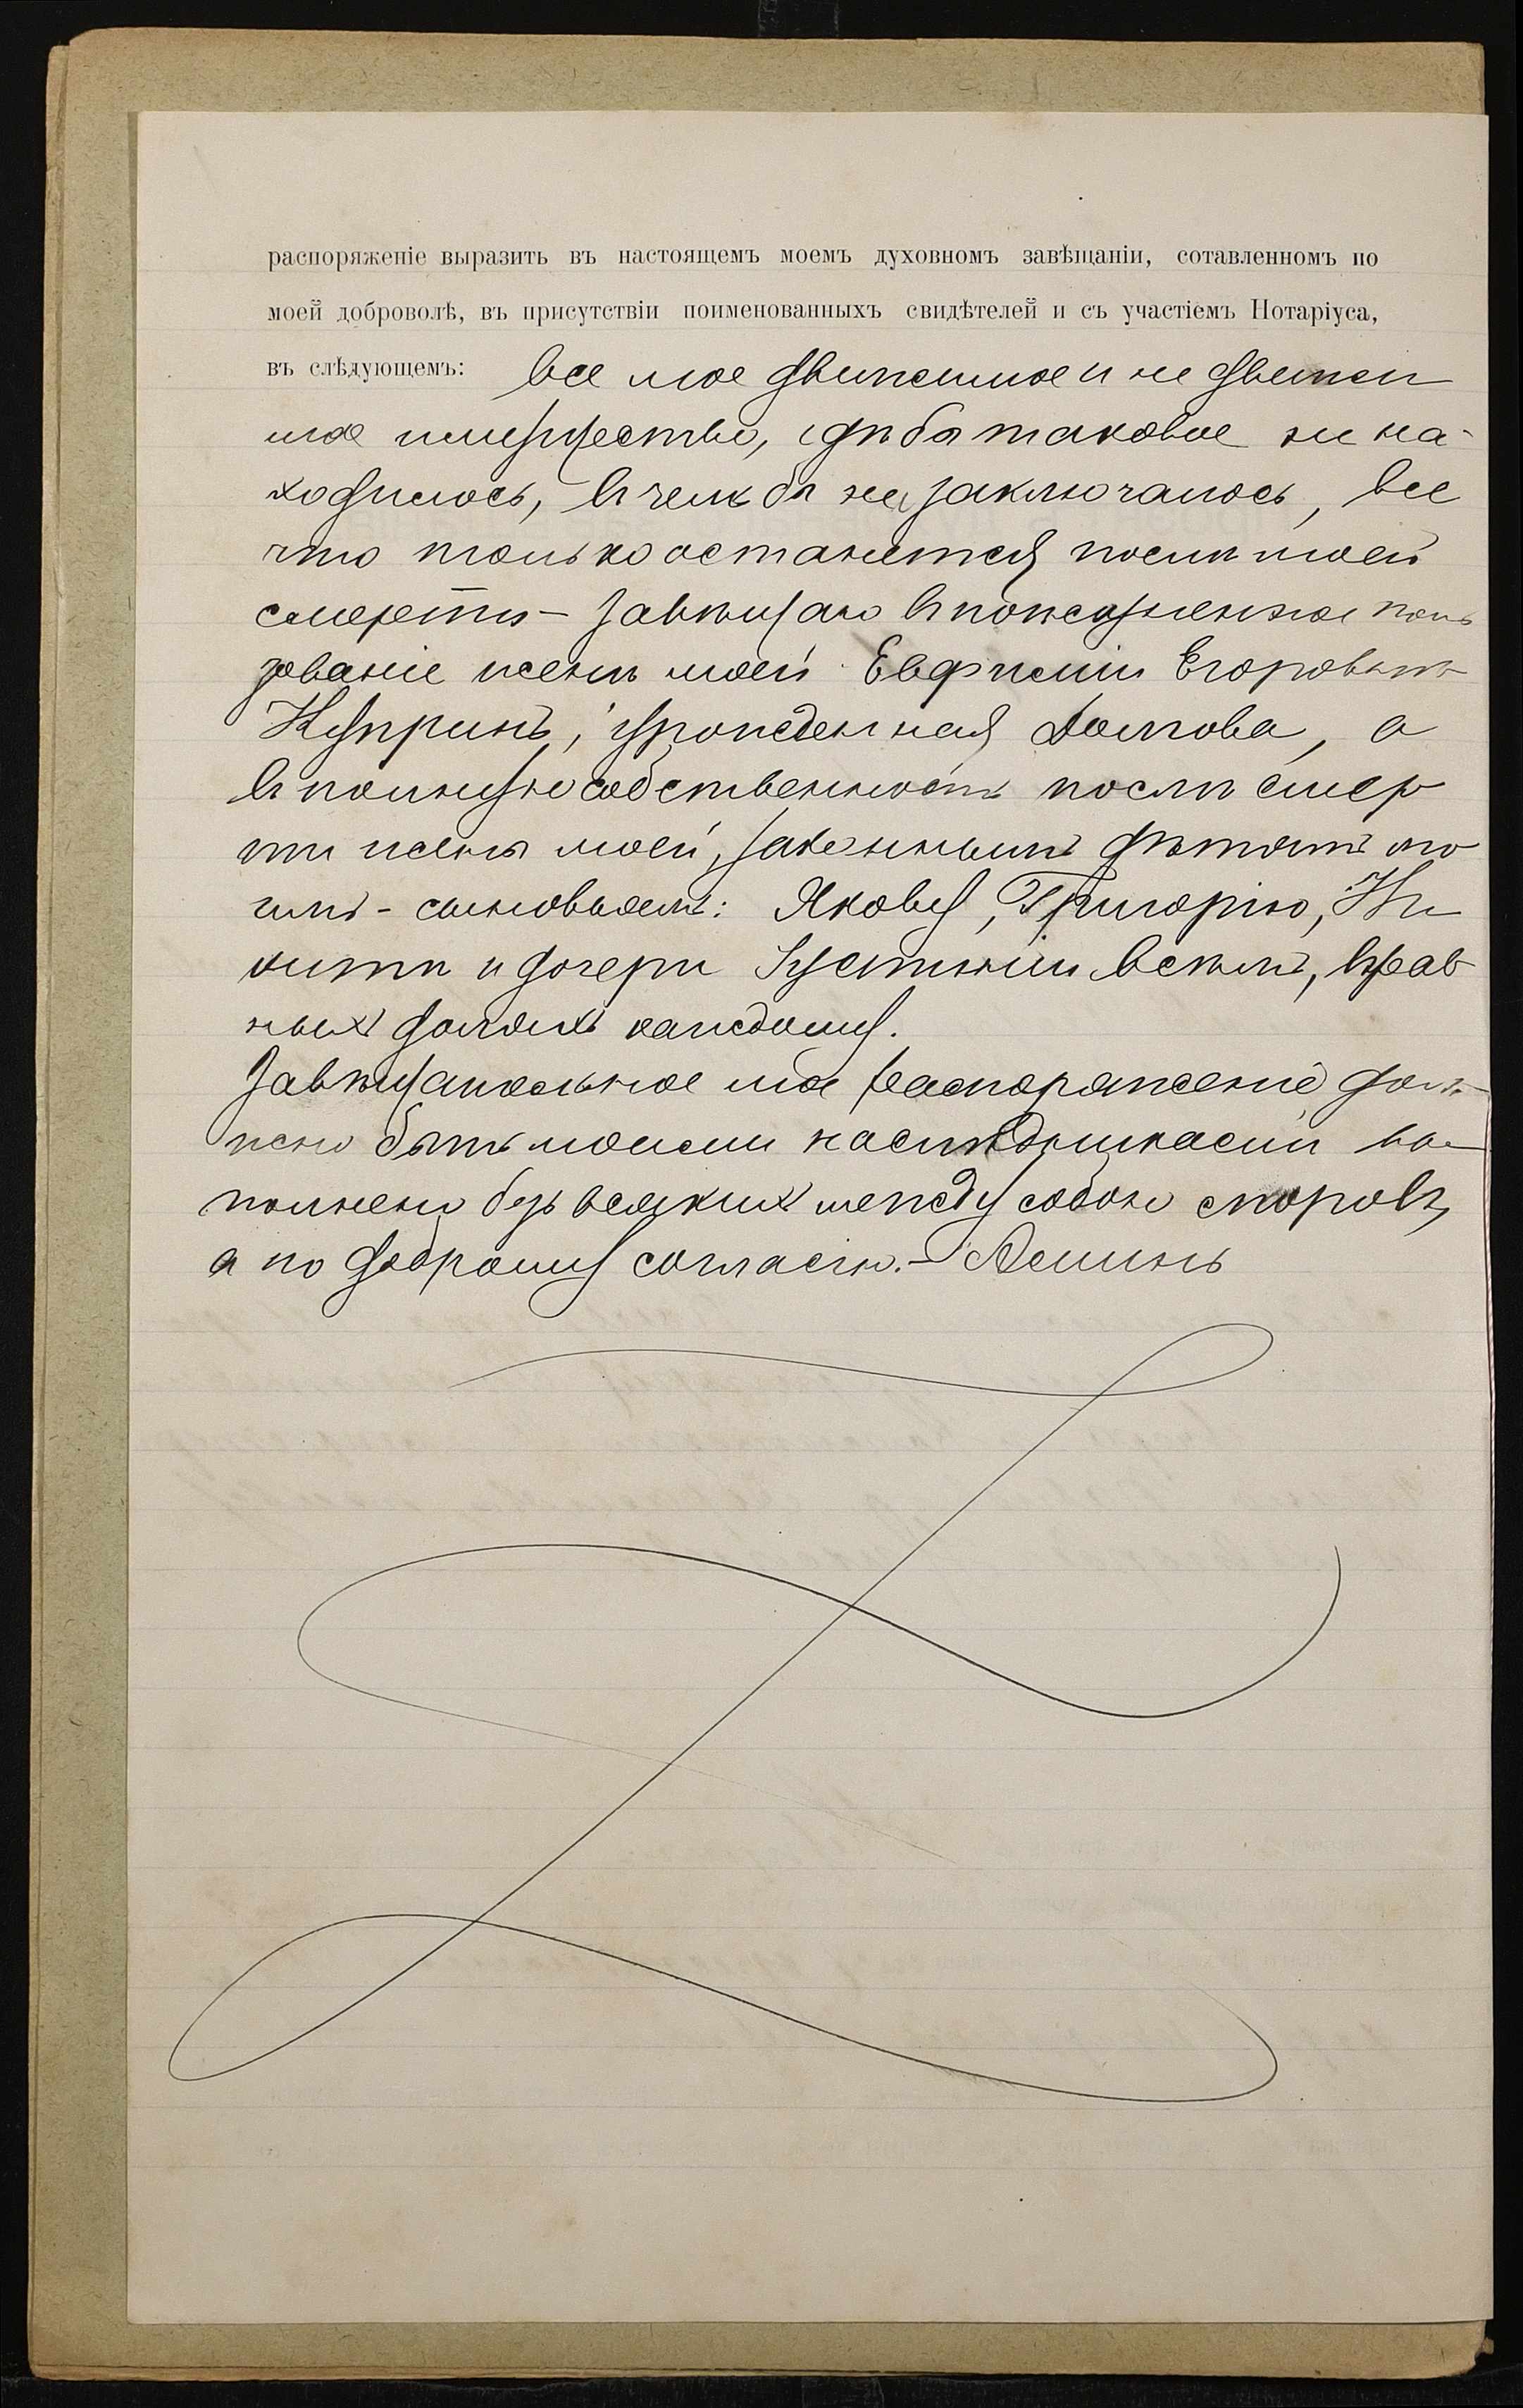 распоряженіе выразить въ настоящемъ моемъ духовномъ завѣщаніи, сотавленномъ по
моей доброволѣ, въ присутствіи поименованныхъ свидѣтелей и съ участіемъ Нотаріуса,
въ слѣдующемъ: все мое движимое и не движи
мое имущество, гдѣ бы таковое ни на-
ходилось, въ чемъ бы ни заключалось, все
что только останется послѣ моей
смерти – завѣщаю въ пожизненное поль
зованіе женѣ моей Евфиміи Егоровнѣ
Купринъ, урожденная Долгова, а
въ полную собственность послѣ смер
ти жены моей, законнымъ дѣтямъ мо
имъ - сыновьямъ: Якову, Григорію, Ни
китѣ и дочери Устиніи всѣмъ, въ рав
ныхъ доляхъ каждому.
Завѣщательное мое распоряженіе долж
но быть моими наслѣдниками вы
полнено безъ всякихъ между собою споровъ,
а по доброму согласію. – Аминь